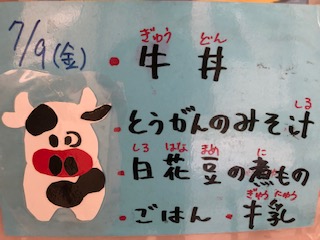 7/9(金)
ぎゅう どん
・牛 丼
しる
・とうがんのみそ汁
しろ はな まめ に
・白花豆の煮もの
ぎゅうにゅう
・ごはん ・牛乳